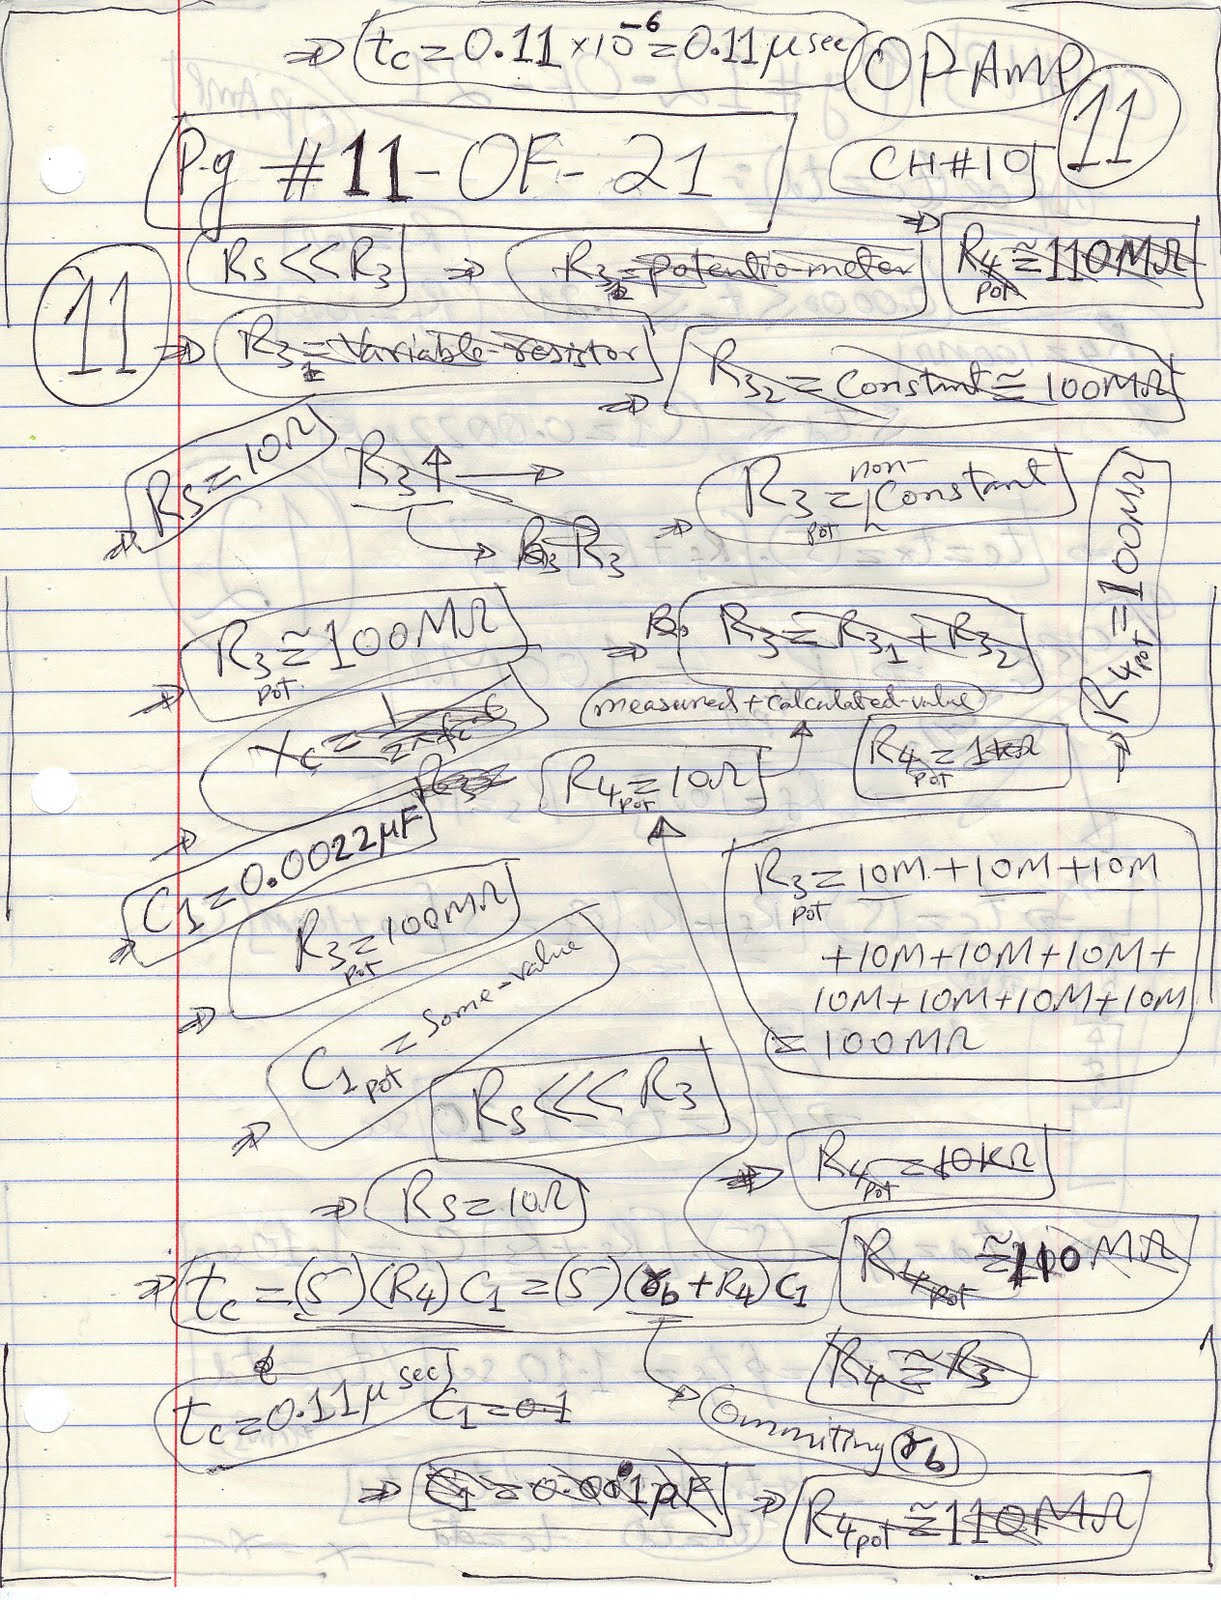 ⇒ tc = 0.11 × 10⁻⁶ = 0.11 μsec
OP-AMP
11
Pg #11-OF-21
CH#10
11
Rs << R3
⇒ R3₁ = potentio-meter
⇒ R4pot ≅ 110MΩ
⇒ R3₁ = Variable-resistor
⇒ R3₂ = Constant ≅ 100MΩ
⇒ Rs = 10Ω
R3 ↑ →
→ R3
⇒ R3pot = non-Constant
⇒ R4pot = 100MΩ
⇒ R3pot ≅ 100MΩ
⇒ R3 = R3₁ + R3₂
measured + calculated-value
Xc =
R4pot = 10Ω
R4pot = 1kΩ
⇒ C1 = 0.0022μF
R3pot = 10M + 10M + 10M
+ 10M + 10M + 10M +
10M + 10M + 10M + 10M
= 100MΩ
⇒ R3pot = 100MΩ
⇒ C1pot = Some-value
Rs <<< R3
⇒ R4pot = 10KΩ
⇒ Rs = 10Ω
R4pot ≅ 110MΩ
⇒ tc = (5)(R4)C1 = (5)(rb + R4)C1
R4 ≅ R3
tc = 0.11μsec
C1 = 0.1
Ommiting rb
⇒ C1 = 0.001μF
⇒ R4pot ≅ 110MΩ